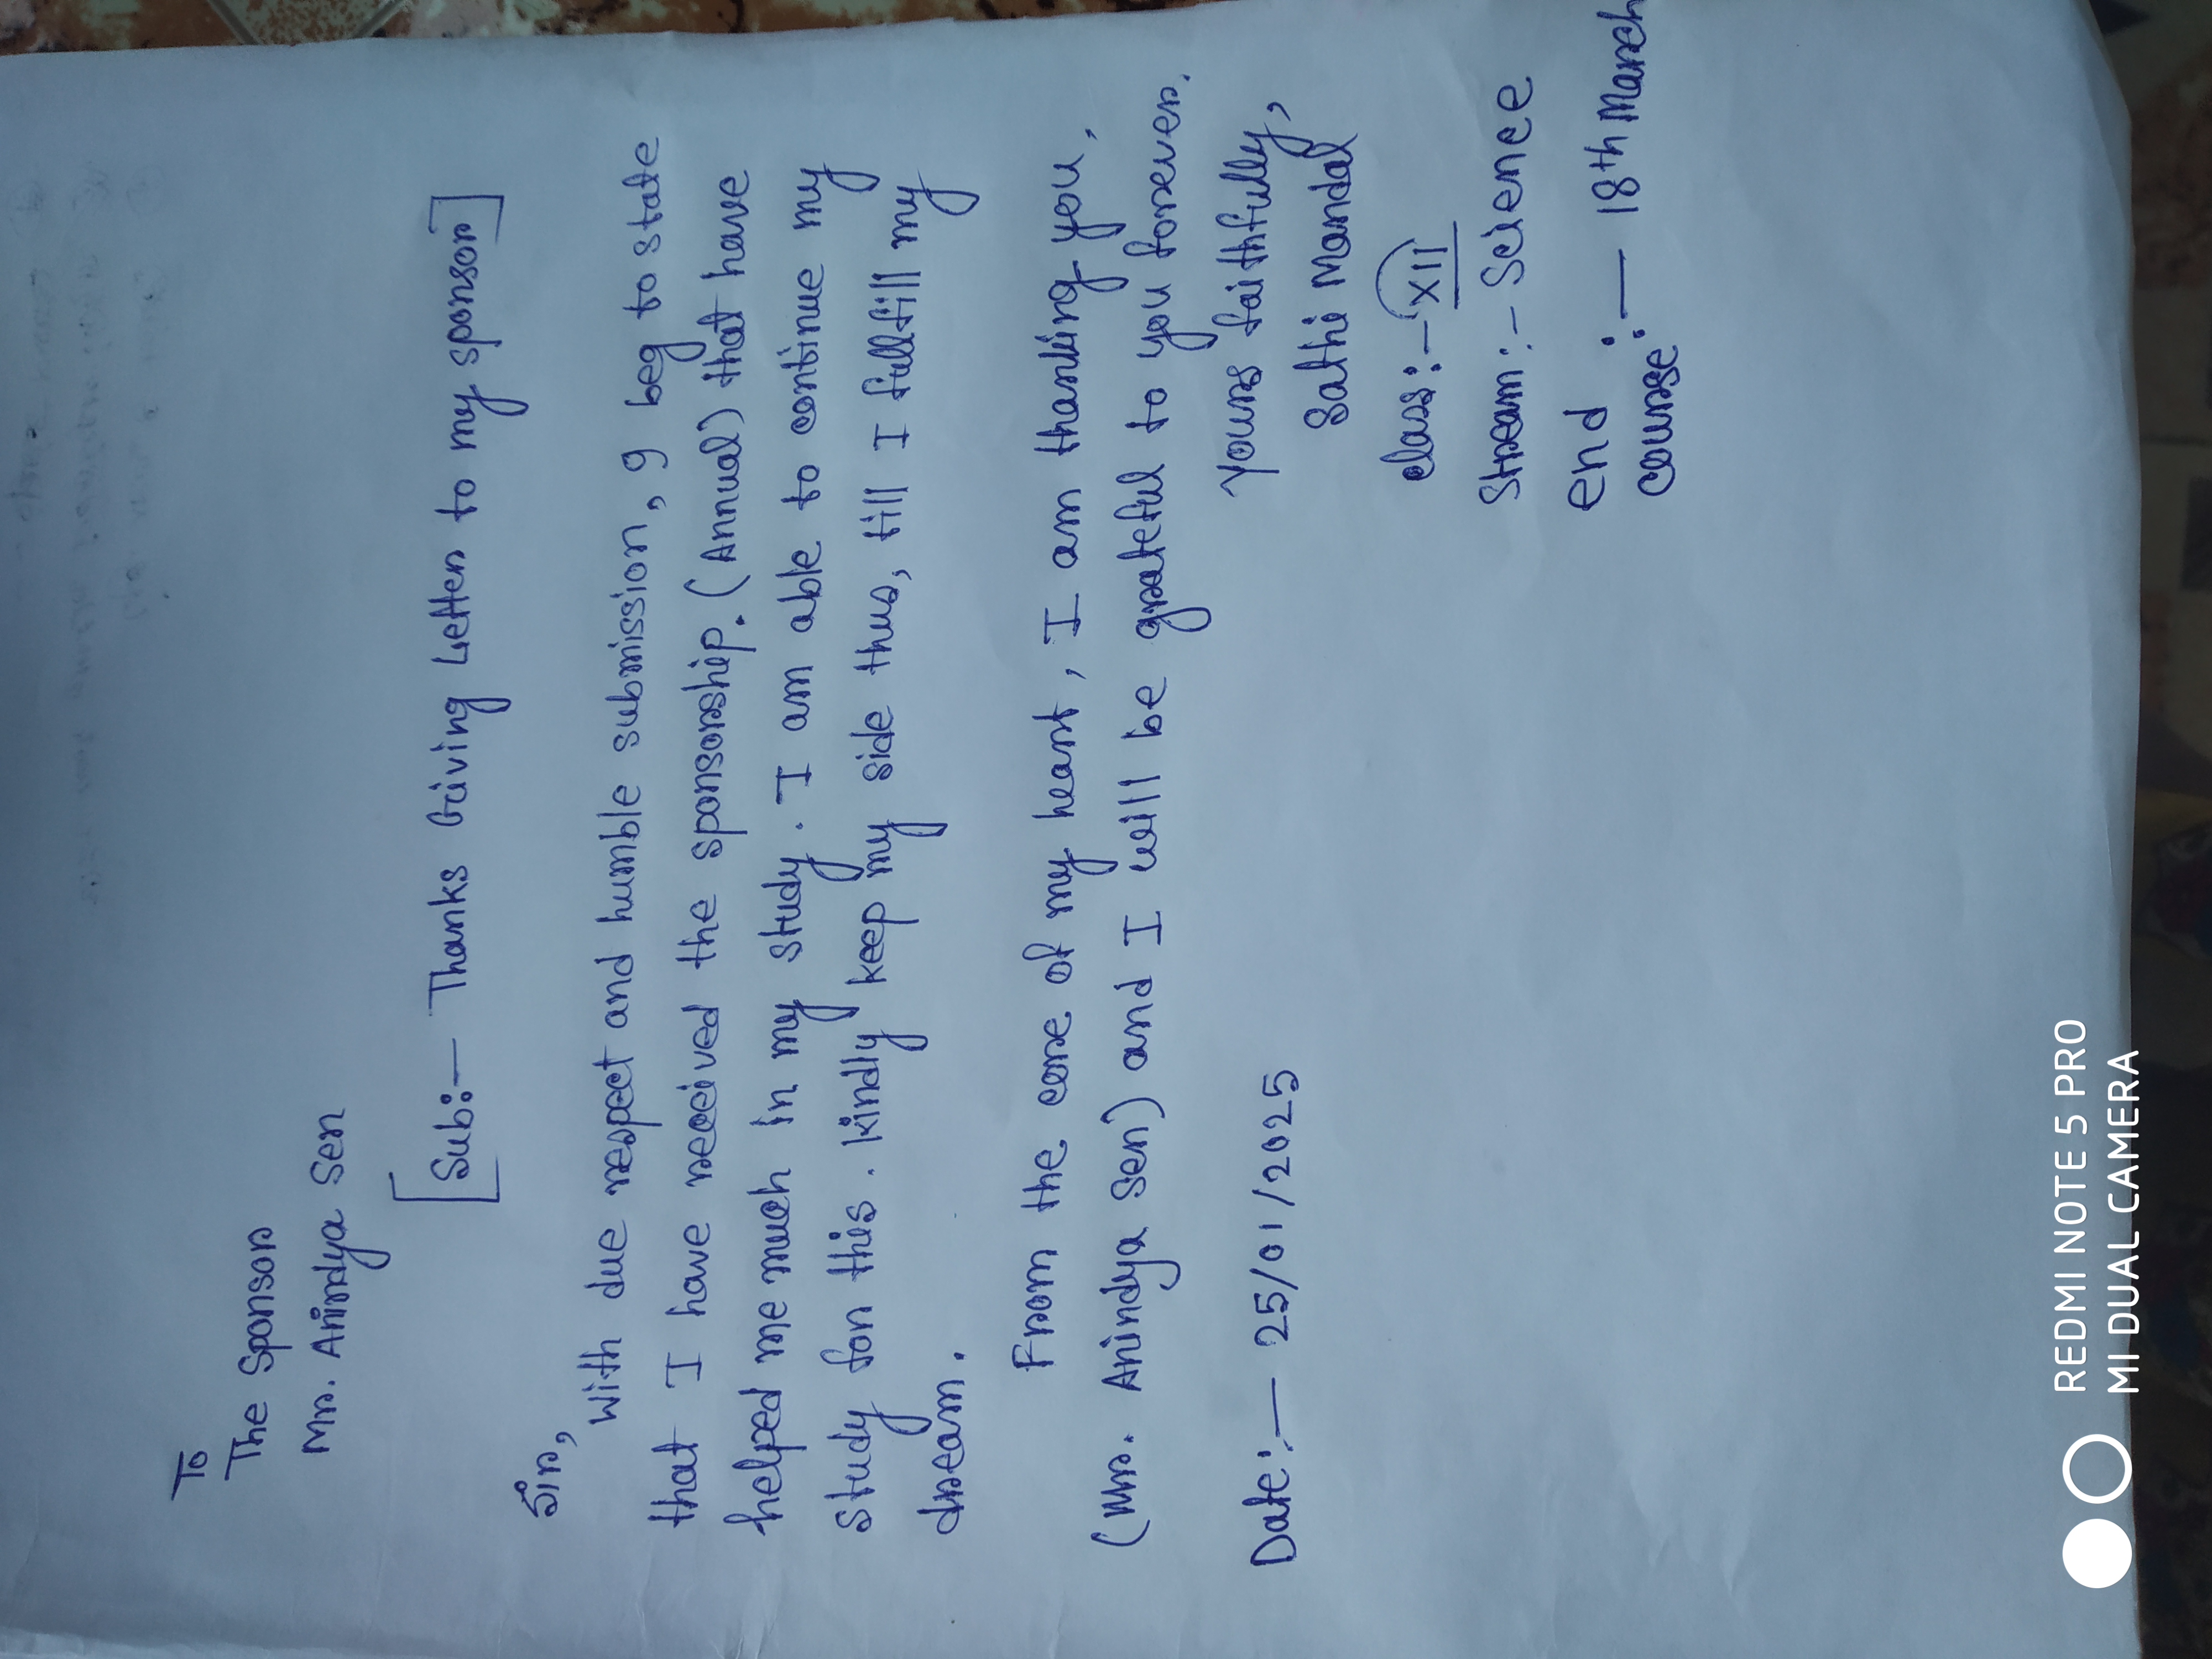 To
The Sponsor
Mr. Anindya Sen
[Sub:— Thanks Giving Letter to my sponsor]
Sir,
With due respect and humble submission, I beg to state
that I have received the sponsorship. (Annual) that have
helped me much in my study. I am able to continue my
study for this. kindly keep my side thus, till I fullfill my
dream.
From the core of my heart, I am thanking you,
(Mr. Anindya Sen) and I will be grateful to you forever.
Yours faithfully,
Date:— 25/01/2025
Sathi Mandal
class:— XII
Stream:- Science
end
course:— 18th March
REDMI NOTE 5 PRO
MI DUAL CAMERA